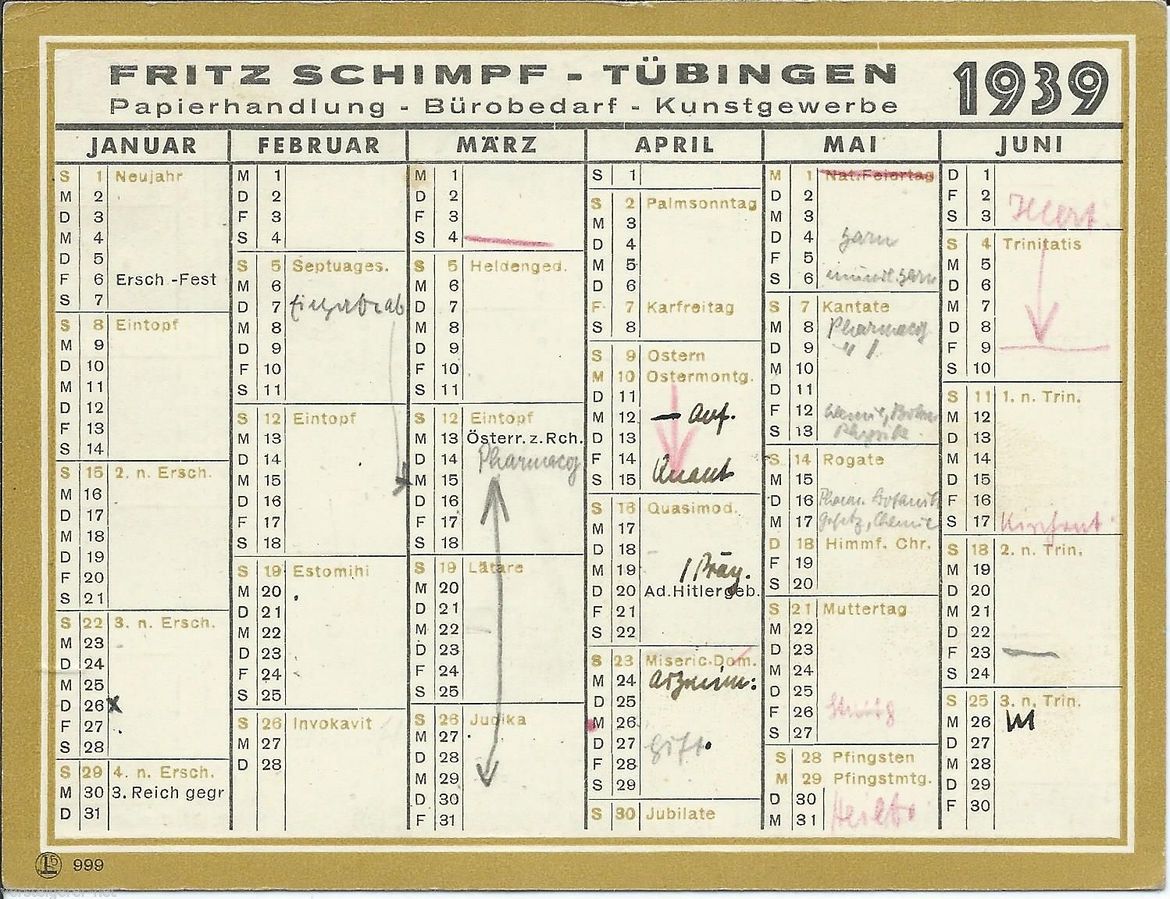 FRITZ SCHIMPF - TÜBINGEN
Papierhandlung - Bürobedarf - Kunstgewerbe
1939
JANUAR
S 1 Neujahr
M 2
D 3
M 4
D 5
F 6 Ersch.-Fest
S 7
S 8 Eintopf
M 9
D 10
M 11
D 12
F 13
S 14
S 15 2. n. Ersch.
M 16
D 17
M 18
D 19
F 20
S 21
S 22 3. n. Ersch.
M 23
D 24
M 25
D 26 x
F 27
S 28
S 29 4. n. Ersch.
M 30 3. Reich gegr
D 31
FEBRUAR
M 1
D 2
F 3
S 4
S 5 Septuages.
M 6
D 7
M 8
D 9
F 10
S 11
S 12 Eintopf
M 13
D 14
M 15
D 16
F 17
S 18
S 19 Estomihi
M 20
D 21
M 22
D 23
F 24
S 25
S 26 Invokavit
M 27
D 28
MÄRZ
M 1
D 2
F 3
S 4
S 5 Heldenged.
M 6
D 7
M 8
D 9
F 10
S 11
S 12 Eintopf
M 13 Österr. z. Rch.
D 14 Pharmacog
M 15
D 16
F 17
S 18
S 19 Lätare
M 20
D 21
M 22
D 23
F 24
S 25
S 26 Judika
M 27
D 28
M 29
D 30
F 31
APRIL
S 1
S 2 Palmsonntag
M 3
D 4
M 5
D 6
F 7 Karfreitag
S 8
S 9 Ostern
M 10 Ostermontg.
D 11
M 12 Anf.
D 13
F 14
S 15 Quant
S 16 Quasimod.
M 17
D 18
M 19
D 20 Ad. Hitler geb.
F 21
S 22
S 23 Miseric. Dom.
M 24
D 25
M 26
D 27 Gift.
F 28
S 29
S 30 Jubilate
MAI
M 1 Nat. Feiertag
D 2
M 3
D 4
F 5
S 6
S 7 Kantate
M 8 Pharmacog
D 9 " !
M 10
D 11
F 12
S 13 Physik.
S 14 Rogate
M 15
D 16
M 17
D 18 Himmf. Chr.
F 19
S 20
S 21 Muttertag
M 22
D 23
M 24
D 25
F 26
S 27
S 28 Pfingsten
M 29 Pfingstmtg.
D 30
M 31
JUNI
D 1
F 2
S 3
S 4 Trinitatis
M 5
D 6
M 7
D 8
F 9
S 10
S 11 1. n. Trin.
M 12
D 13
M 14
D 15
F 16
S 17
S 18 2. n. Trin.
M 19
D 20
M 21
D 22
F 23
S 24
S 25 3. n. Trin.
M 26
D 27
M 28
D 29
F 30
999